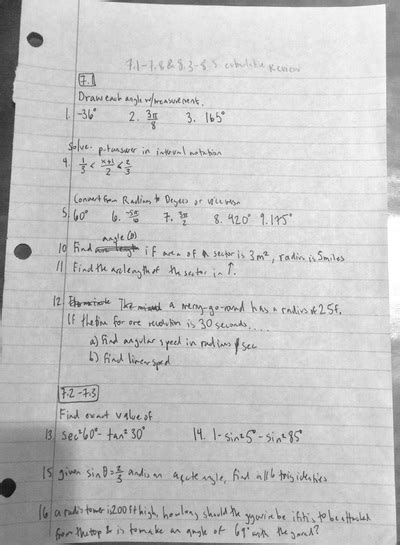 7.1-7.8 & 8.3-8.5 cumulative Review
7.1
Draw each angle w/ measurement.
1. -36° 2. 3π/8 3. 165°
Solve. put answer in interval notation
4. 1/3 < x+1/2 ≤ 2/3
Convert from Radians to Degrees or vice versa
5. 60° 6. -5π/6 7. 3π/2 8. 420° 9. 175°
angle (θ)
10 Find arc length if area of a sector is 3m², radius is 5miles
11 Find the arc length of the sector in ↑.
12 The a merry-go-round has a radius of 25f.
If the time for one revolution is 30 seconds....
a) Find angular speed in radians / sec
b) Find linear speed
7.2-7.3
Find exact value of
13. sec²60° - tan²30° 14. 1-sin²5°-sin²85°
15 given sin θ = 2/3 and is an acute angle, find all 6 trig identities
16 a radio tower is 200 ft high, how long should the guy wire be if it is to be attached
from the top & is to make an angle of 69° with the ground?